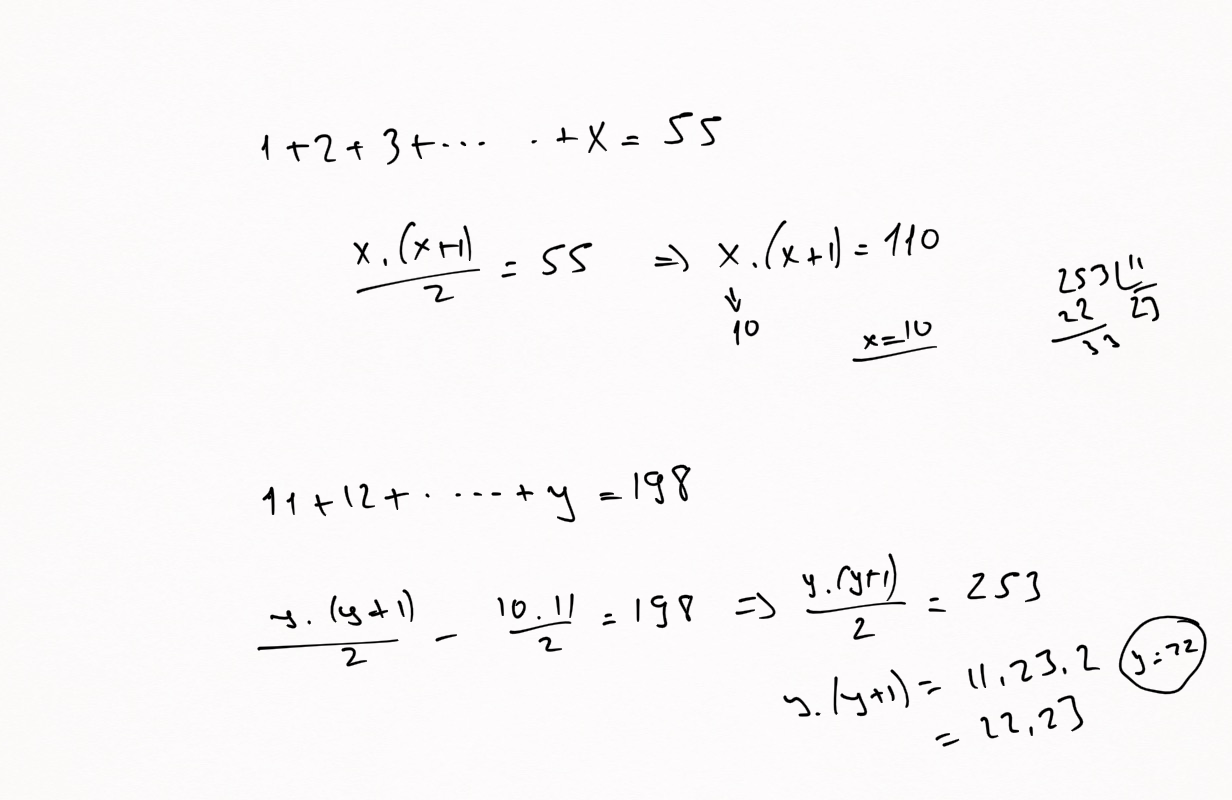 1+2+3+... . +x = 55
x.(x+1)/2 = 55 => x.(x+1) = 110
↓
10
x=10
253 11
22 23
33
11+12+. ....+ y = 198
y.(y+1)/2 - 10.11/2 = 198 => y.(y+1)/2 = 253
y.(y+1) = 11.23.2
= 22.23
y=22